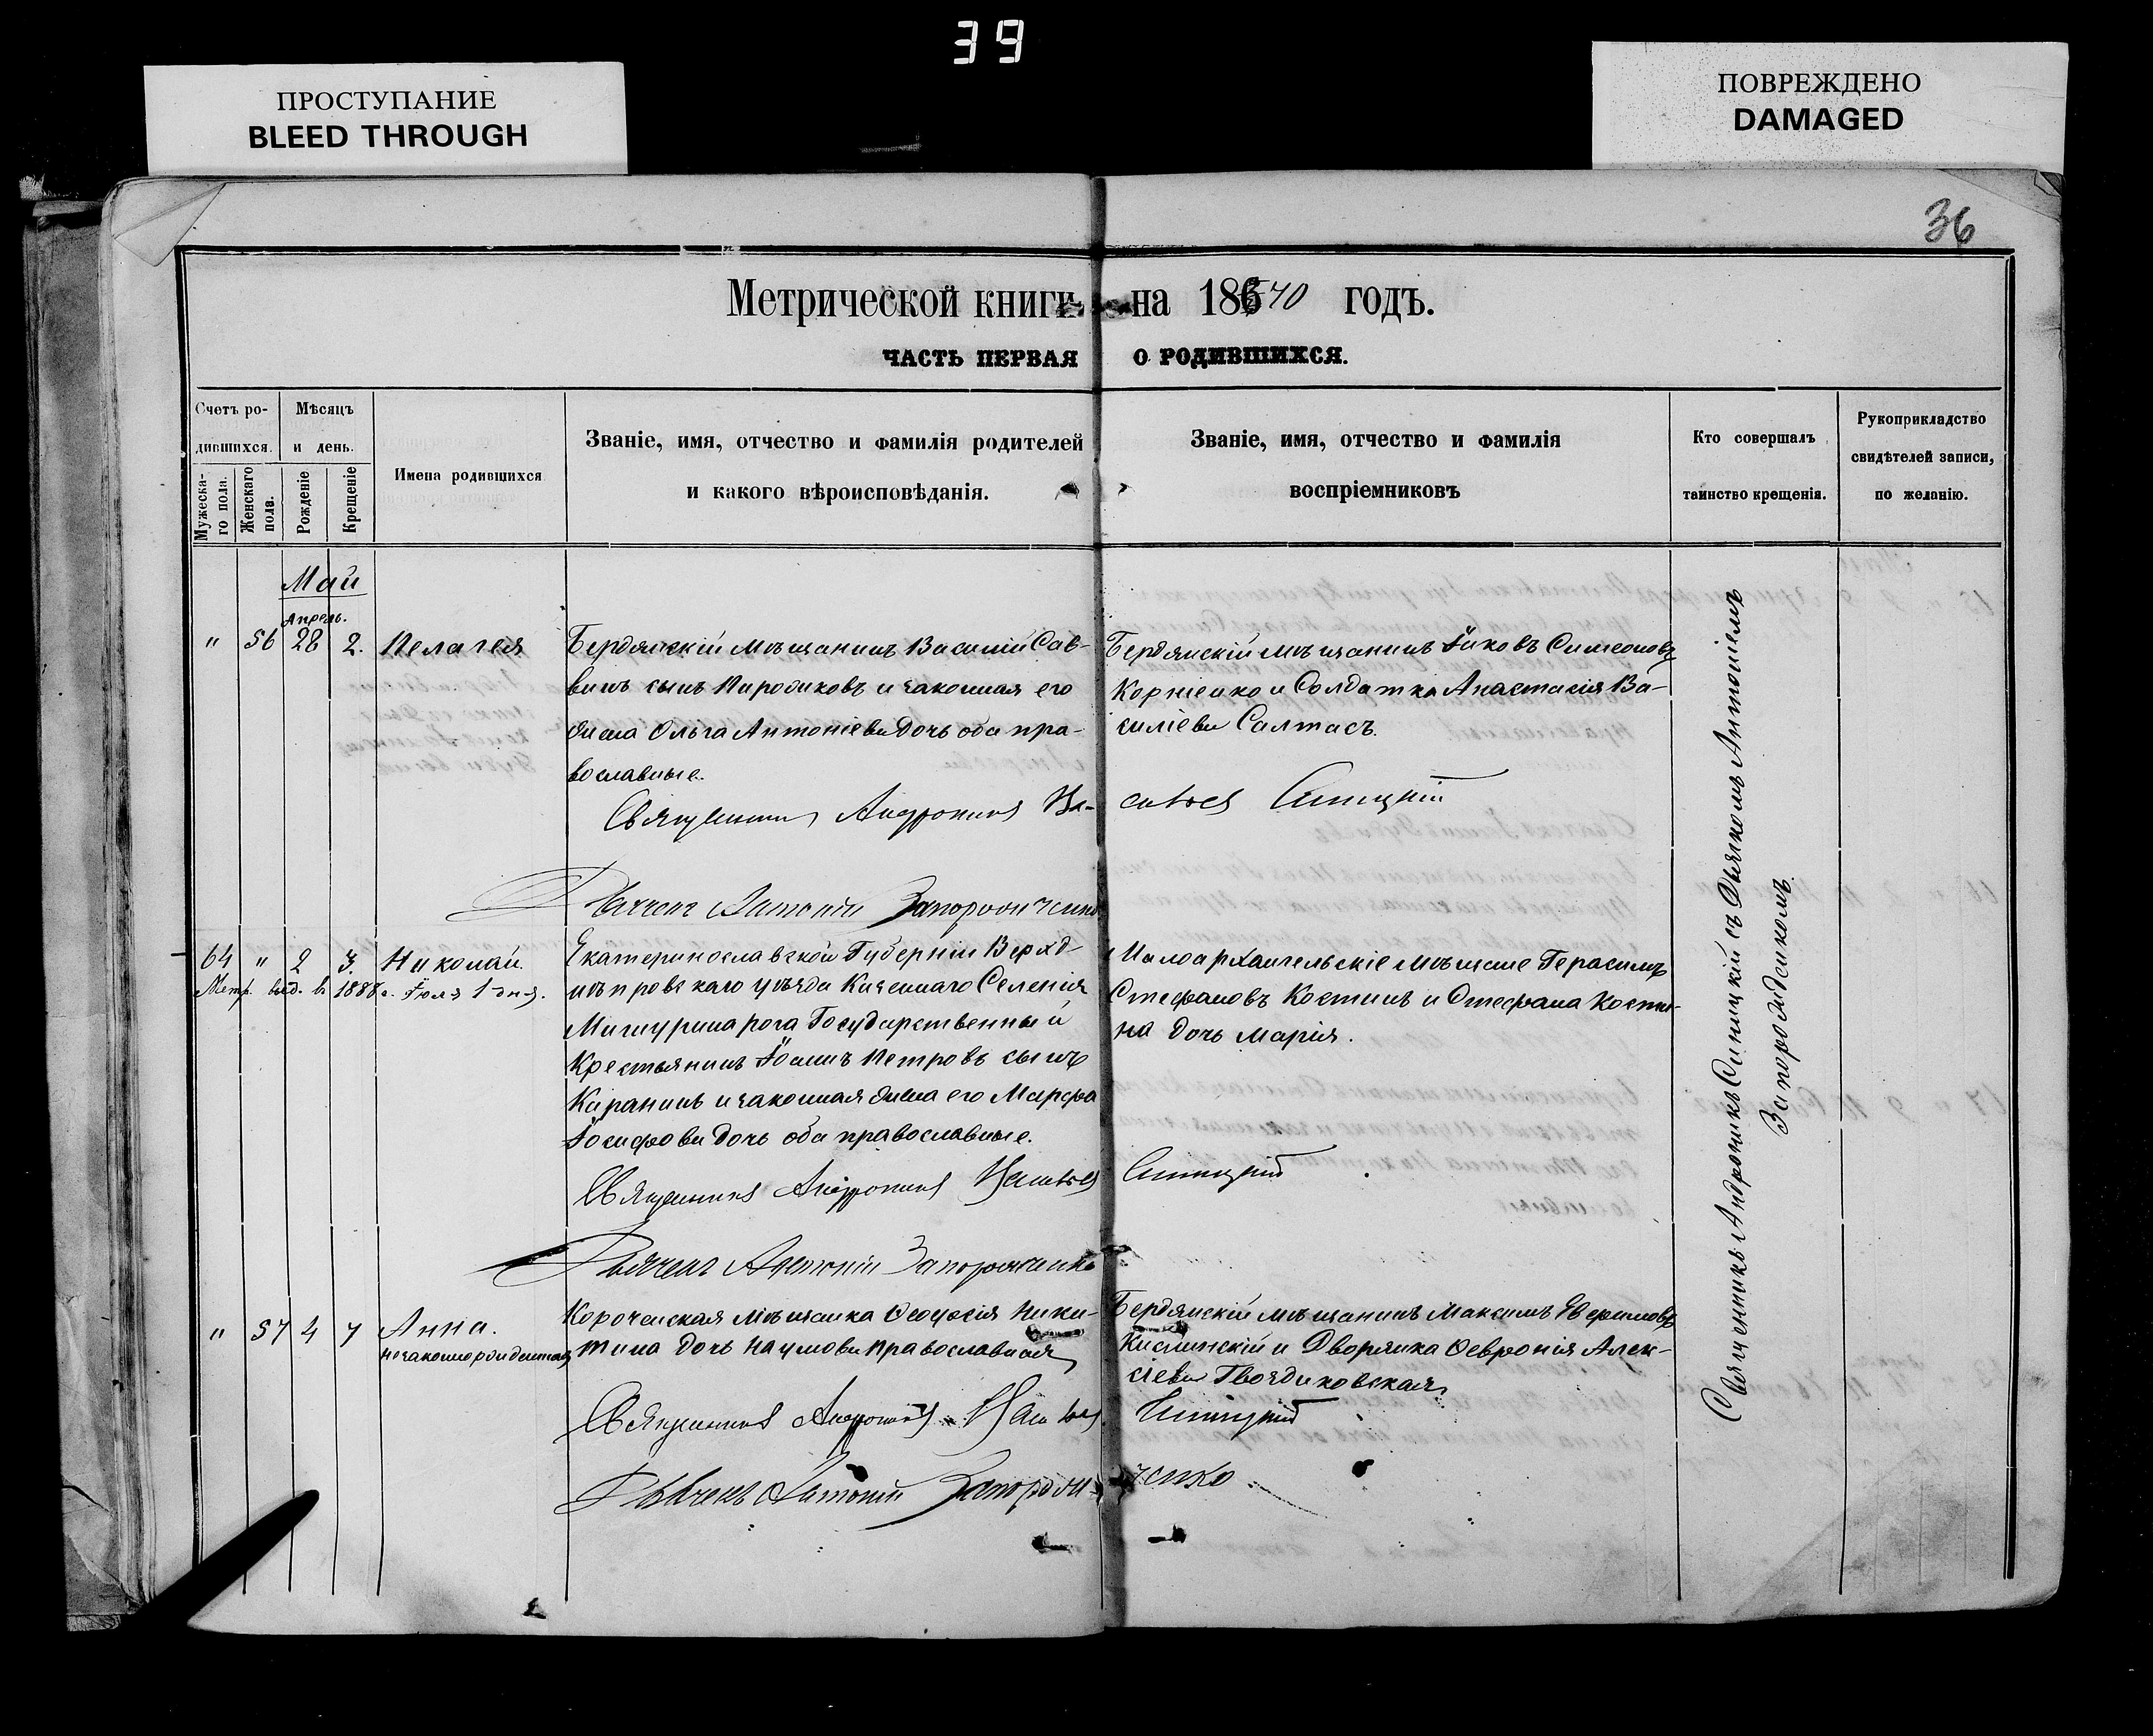 39
ПРОСТУПАНИЕ
BLEED THROUGH
ПОВРЕЖДЕНО
DAMAGED
36
Метрической книги на 18670 годъ.
ЧАСТЬ ПЕРВАЯ О РОДИВШИХСЯ.
Счетъ ро-
дившихся.
Мужеска-
го пола.
Женскаго
пола.
Мѣсяцъ
и день.
Рожденіе
Крещеніе
Имена родившихся
Званіе, имя, отчество и фамилія родителей
и какого вѣроисповѣданія.
Званіе, имя, отчество и фамилія
воспріемниковъ
Кто совершалъ
таинство крещенія.
Рукоприкладство
свидѣтелей записи,
по желанію.
Май
Апрель.
" 56 28 2. Пелагея
Бердянскій мѣщанинъ Василій Сав-
винъ сынъ и законная его
жена Ольга Антоніева дочь оба пра-
вославные.
Бердянскій мѣщанинъ Іаковъ Симеоновъ
Корніенко и Солдатка Анастасія Ва-
силіева Салтасъ.
Священникъ Андроникъ Синицкій
Дьячекъ Антоній Запорожченко
64 " 2 3. Николай.
Метр. выд. в 1888 г. Іюля 1 дня.
Екатеринославской Губерніи Верхд-
нѣпровскаго уѣзда Казеннаго Селенія
Мишурина рога Государственный
Крестьянинъ Іоаннъ Петровъ сынъ
и законная жена его Марфа
Іосифова дочь оба православные.
Малоархангельскіе мѣщане Герасимъ
Стефановъ Костинъ и Стефана Кости-
на дочь Марія.
Священникъ Андроникъ Синицкій
Дьячекъ Антоній Запорожченко
" 57 4 7 Анна.
незаконнорожденная
Короченская мѣщанка Ѳеодосія Ники-
тина дочь Наумова православная
Бердянскій мѣщанинъ Максимъ Евфимовъ
Кислинскій и Дворянка Ѳевронія Алек-
сіева Гвоздиковская
Священникъ Андроникъ Синицкій
Дьячекъ Антоній Запорожченко
Священникъ Андроникъ Синицкій съ Дьячкомъ Антоніемъ
Запорожченкомъ.